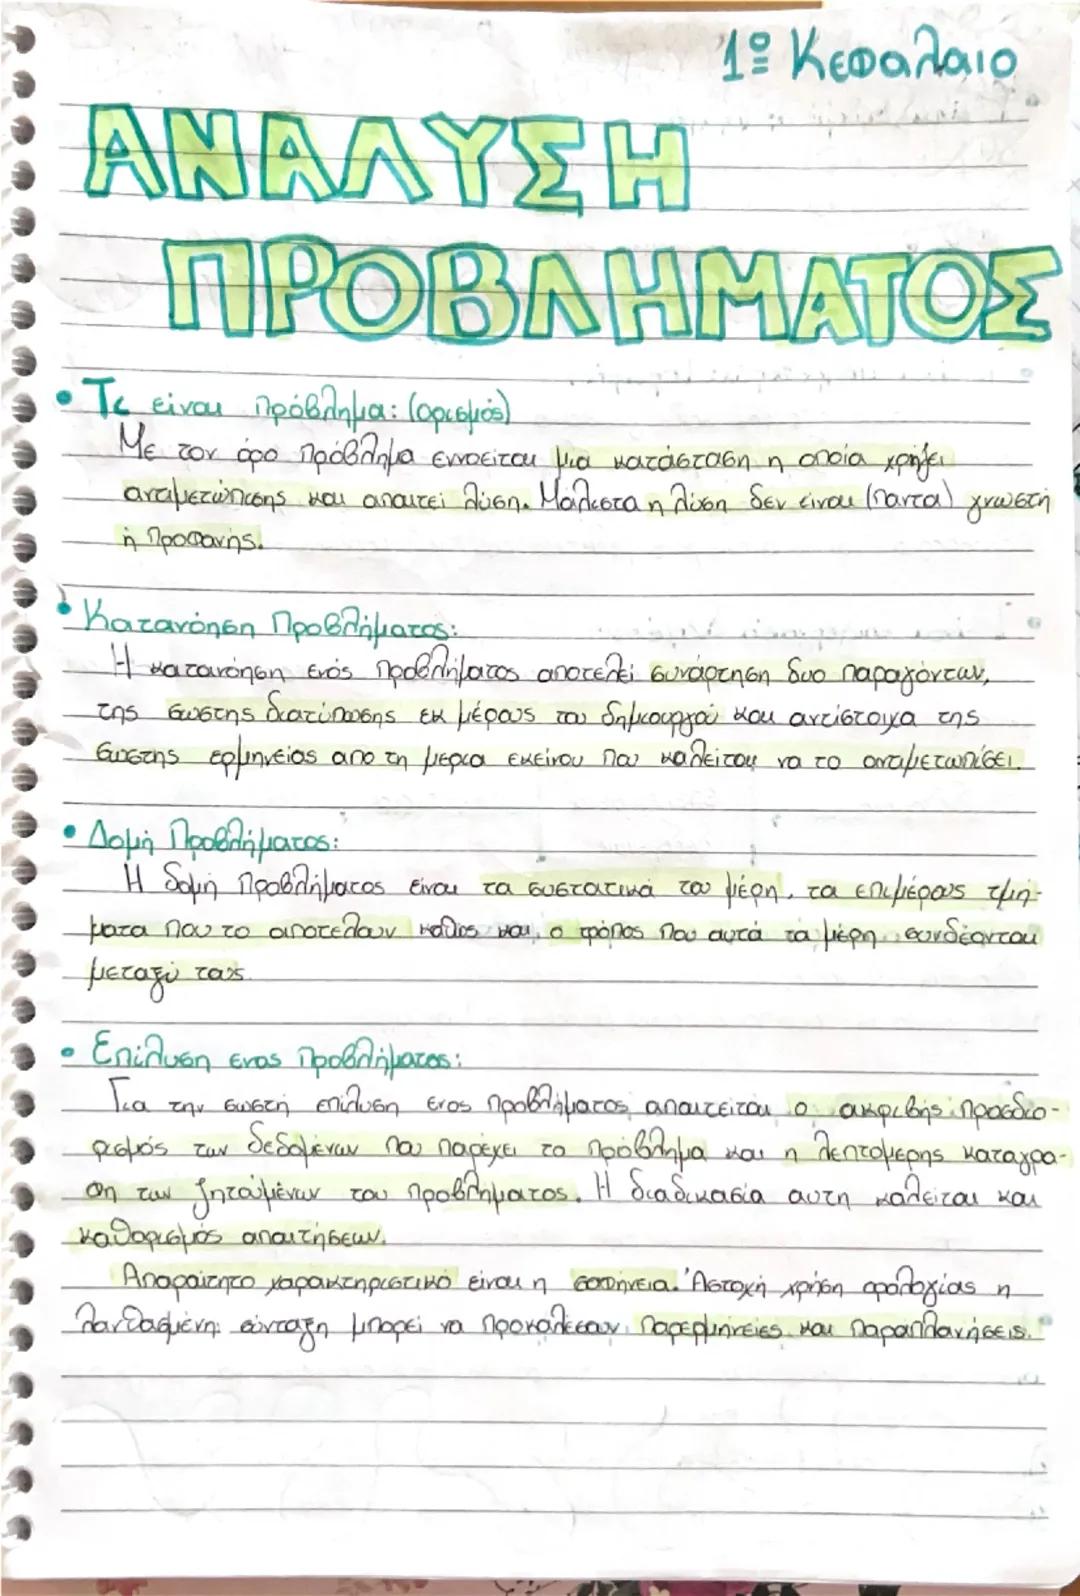 1º Κεφαλαιο
ΑΝΑΛΥΣΗ
ΠΡΟΒΛΗΜΑΤΟΣ
• Τι είναι πρόβλημα: (ορισμός)
Με τον όρο πρόβλημα εννοείται μια κατάσταση η οποία χρήζει
αντιμετώπισης και απαιτεί λύση. Μάλιστα η λύση δεν είναι (παντα) γνωστή
ή προφανής.
• Κατανόηση Προβλήματος:
Η κατανόηση ενός προβλήματος αποτελεί συνάρτηση δυο παραγόντων,
της σωστης διατύπωσης εκ μέρους του δημιουργού και αντίστοιχα της
σωστης ερμηνείας απο τη μερια εκείνου που καλείται να το αντιμετωπίσει.
• Δομή Προβλήματος:
Η δομή προβλήματος είναι τα συστατικά του μέρη, τα επιμέρους τμή-
ματα που το αποτελουν καθώς και, ο τρόπος που αυτά τα μέρη συνδέονται
μεταξύ τους.
• Επίλυση ενος προβλήματος:
Για την σωστή επίλυση ενος προβλήματος απαιτείται ο ακριβής προσδιο-
ρισμός των δεδομένων που παρέχει το πρόβλημα και η λεπτομερης καταγρα-
φη των ζητούμενων του προβληματος. Η διαδικασία αυτη καλείται και
καθορισμός απαιτήσεων.
Απαραίτητο χαρακτηριστικό είναι η σαφήνεια. Άστοχη χρήση ορολογίας η
λανθασμένη σύνταξη μπορεί να προκαλέσουν παρερμηνείες και παραπλανήσεις.